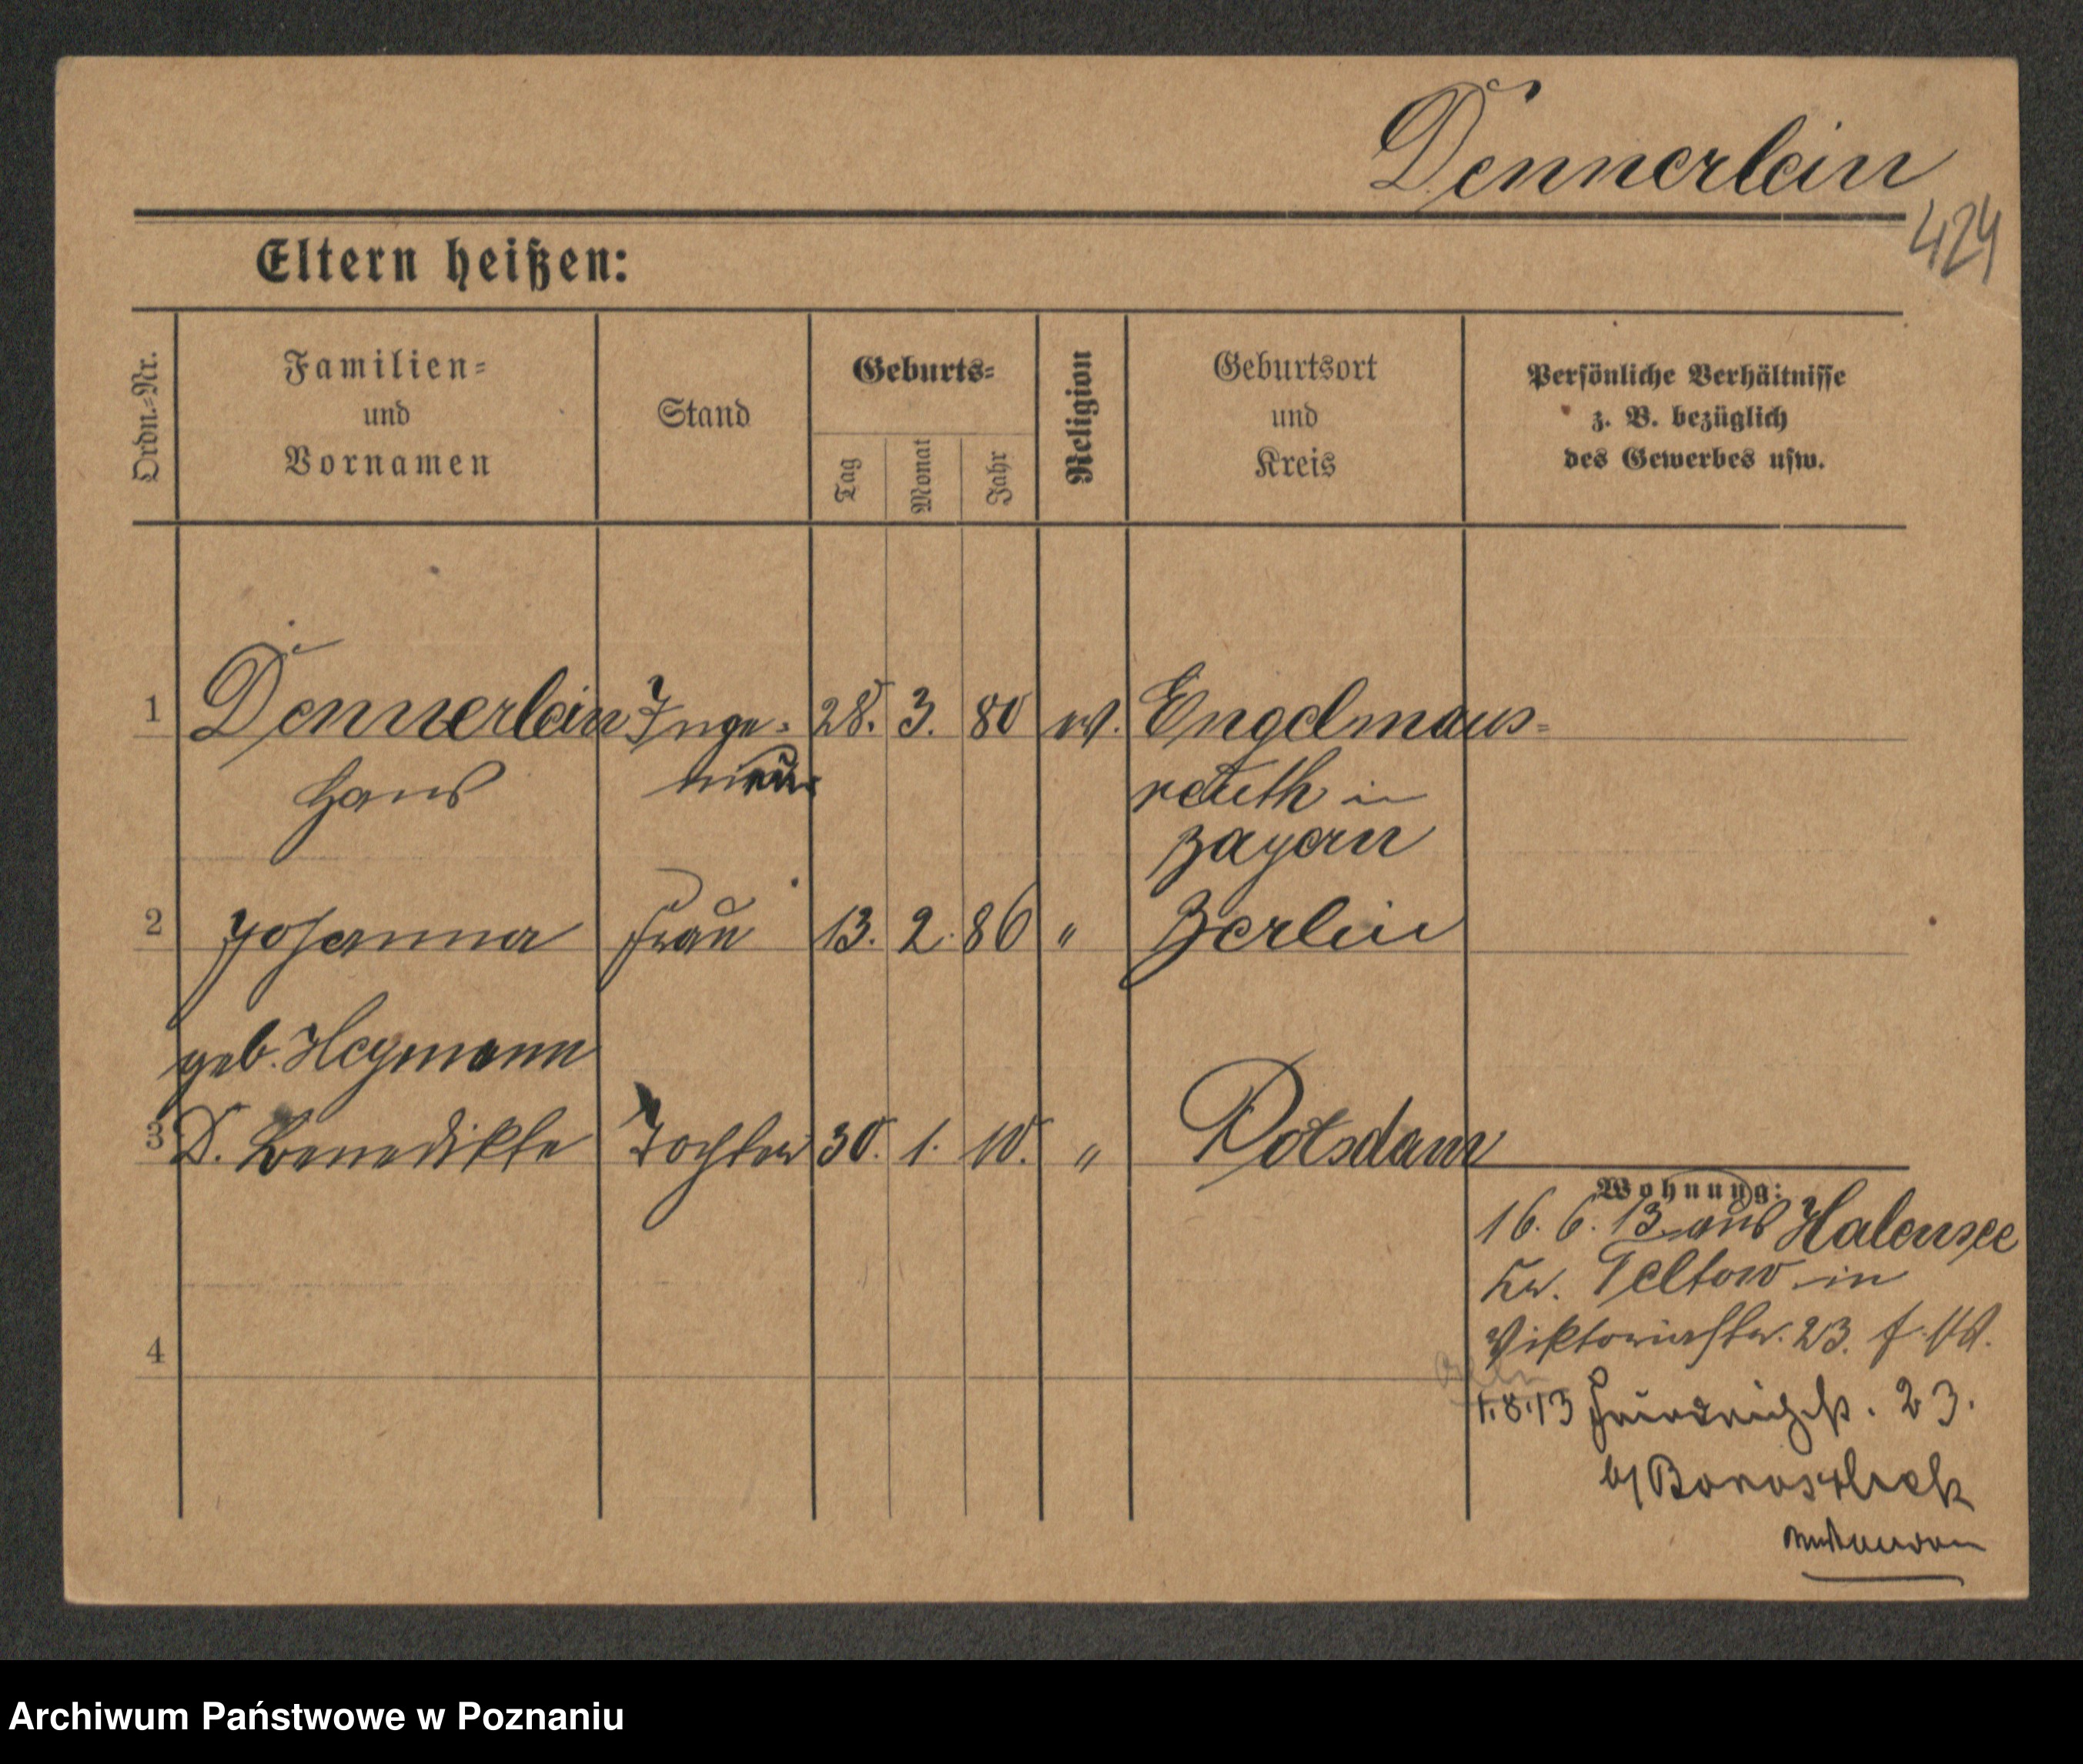 Dennerlein
424
Eltern heißen:
Ordn.-Nr.
Familien-
und
Vornamen
Stand
Geburts-
Tag
Monat
Jahr
Religion
Geburtsort
und
Kreis
Persönliche Verhältnisse
z. B. bezüglich
des Gewerbes usw.
1 Dennerlein Inge- 28. 3. 80 ev. Engelmans-
Hans nieur reuth in
Bayern
2 Johanna Frau 13. 2. 86 " Berlin
geb. Heymann
3 D. Benedikte Tochter 30. 1. 10. " Potsdam
Wohnung:
16. 6. 13 aus Halensee
Kr. Teltow in
Viktoriastr. 23.
4
1.8.13 Friedrichstr. 23.
b/
Archiwum Państwowe w Poznaniu